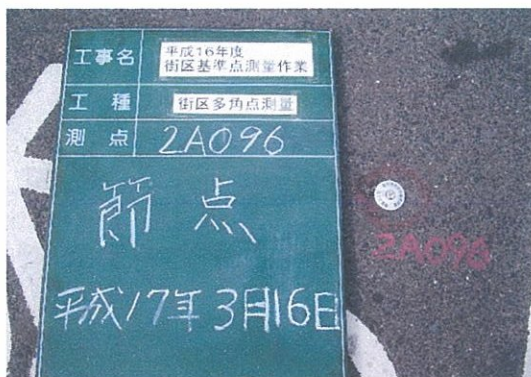 工事名 平成16年度
街区基準点測量作業
工種 街区多角点測量
測点 2A096
節点
平成17年3月16日
2A096